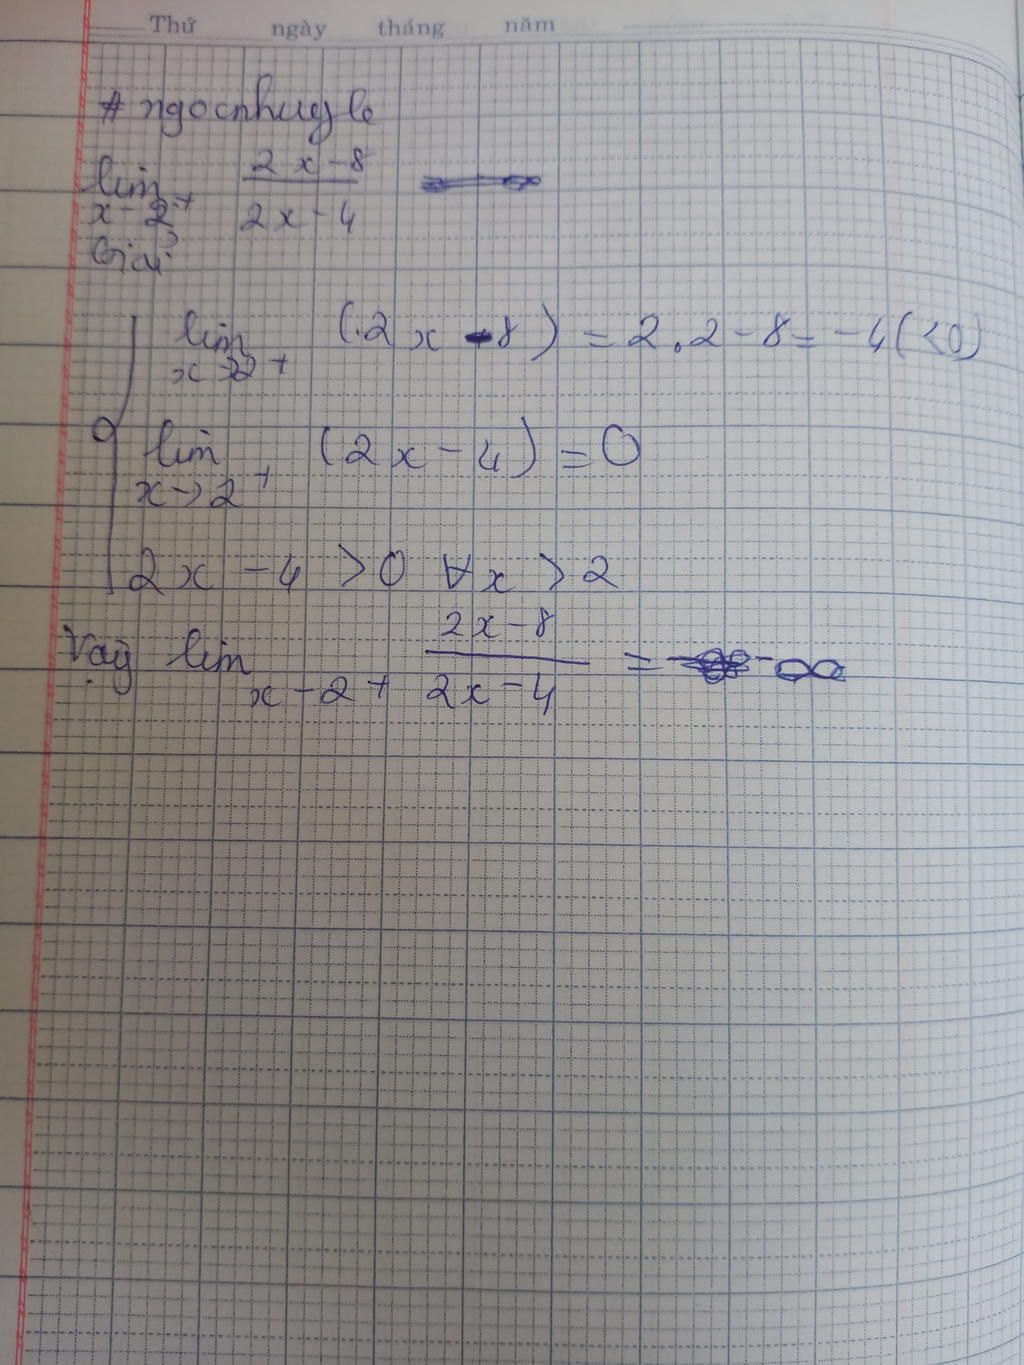 Thứ ngày tháng năm
# ngocnhuyle
lim 2x-8
x-2+ 2x-4
Giải
lim (.2x-8) = 2.2-8 = -4(<0)
x→2+
lim (2x-4) = 0
x→2+
2x-4 >0 ∀x >2
Vậy lim 2x-8 = -∞
x-2+ 2x-4